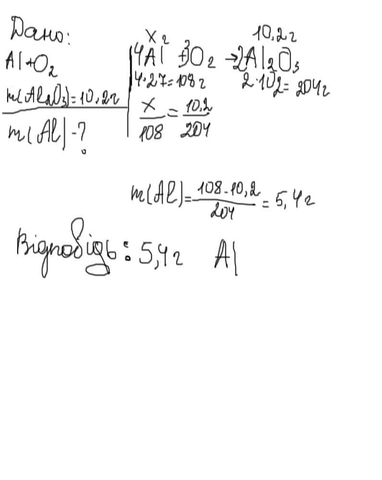 Дано:
Al+O₂
m(Al₂O₃)=10,2г
m(Al)-?
x г 10,2г
4Al+3O₂→2Al₂O₃
4·27=108г 2·102=204г
x/108=10,2/204
m(Al)=108·10,2/204=5,4г
Відповідь: 5,4г Al